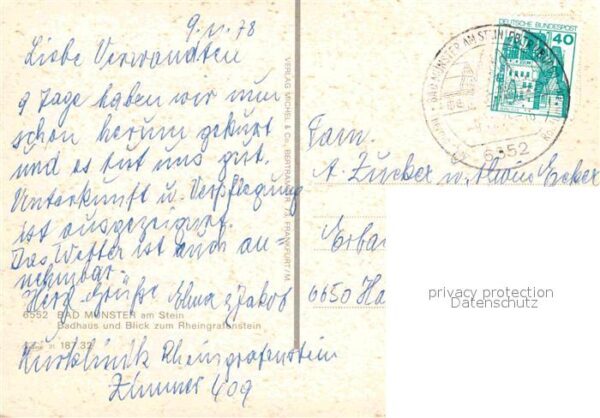 9.V.78
Liebe Verwandten
9 Tage haben wir nun
schon herum gekurt
und es tut uns gut.
Unterkunft u. Verpflegung
ist ausgezeignet.
Das Wetter ist auch an-
nehmbar.
Herz. Grüße Elma & Jakob
6552 BAD MÜNSTER am Stein
Badhaus und Blick zum Rheingrafenstein
187.32
Kurklinik Rheingrafenstein
Zimmer 409
VERLAG MICHEL & Co., FRANKFURT/M.
DEUTSCHE BUNDESPOST
40
BAD MÜNSTER AM STEIN
6552
Fam.
A. Zucker u. Ecker
Erba
6650 Ho
privacy protection
Datenschutz